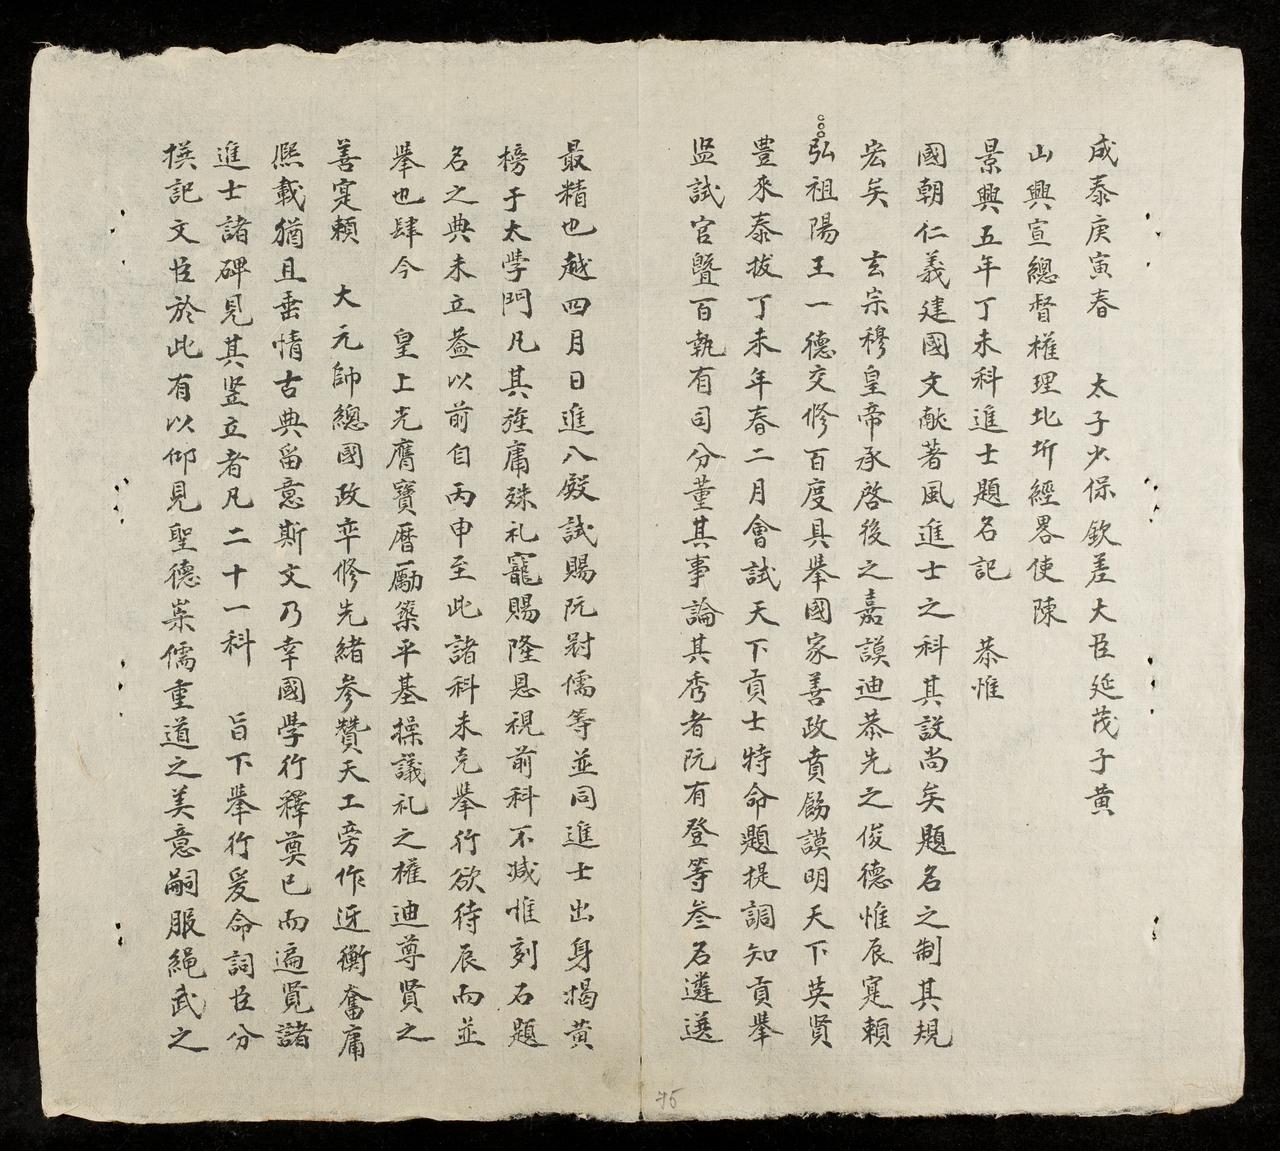 成泰庚寅春　太子少保欽差大臣延茂子黃
山興宣總督權理北圻經畧使陳
景興五年丁未科進士題名記　恭惟
國朝仁義建國文献著風進士之科其設尚矣題名之制其規
宏矣　玄宗穆皇帝承啓後之嘉謨迪恭先之俊德惟辰寔頼
弘祖陽王一德交修百度具舉國家善政賁餙謨明天下英賢
豊來泰拔丁未年春二月會試天下貢士特命題提調知貢舉
监試官曁百執有司分董其事論其秀者阮有登等叄名遴選
最精也越四月日進八殿試賜阮尌儒等並同進士出身揭黄
榜于太學門凡其旌庸殊礼寵賜隆恩視前科不减惟刻石題
名之典未立葢以前自丙申至此諸科未克舉行欲待辰而並
舉也肆今　皇上光膺寶曆勵築平基操議礼之權迪尊賢之
善寔頼　大元帥總國政卒修先緒參贊天工旁作迓衡奮庸
熈載猶且垂情古典留意斯文乃幸國學行釋奠已而遍覽諸
進士諸碑見其竖立者凡二十一科　旨下舉行爰命詞臣分
撰記文臣於此有以仰見聖德崇儒重道之美意嗣服繩武之
75